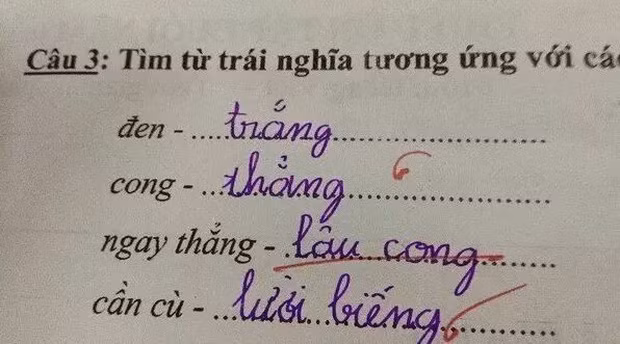 Câu 3: Tìm từ trái nghĩa tương ứng với cá
đen - ....trắng..............................
cong - ...thẳng..............................
ngay thẳng - .lâu cong.........
cần cù - ...lười biếng...............